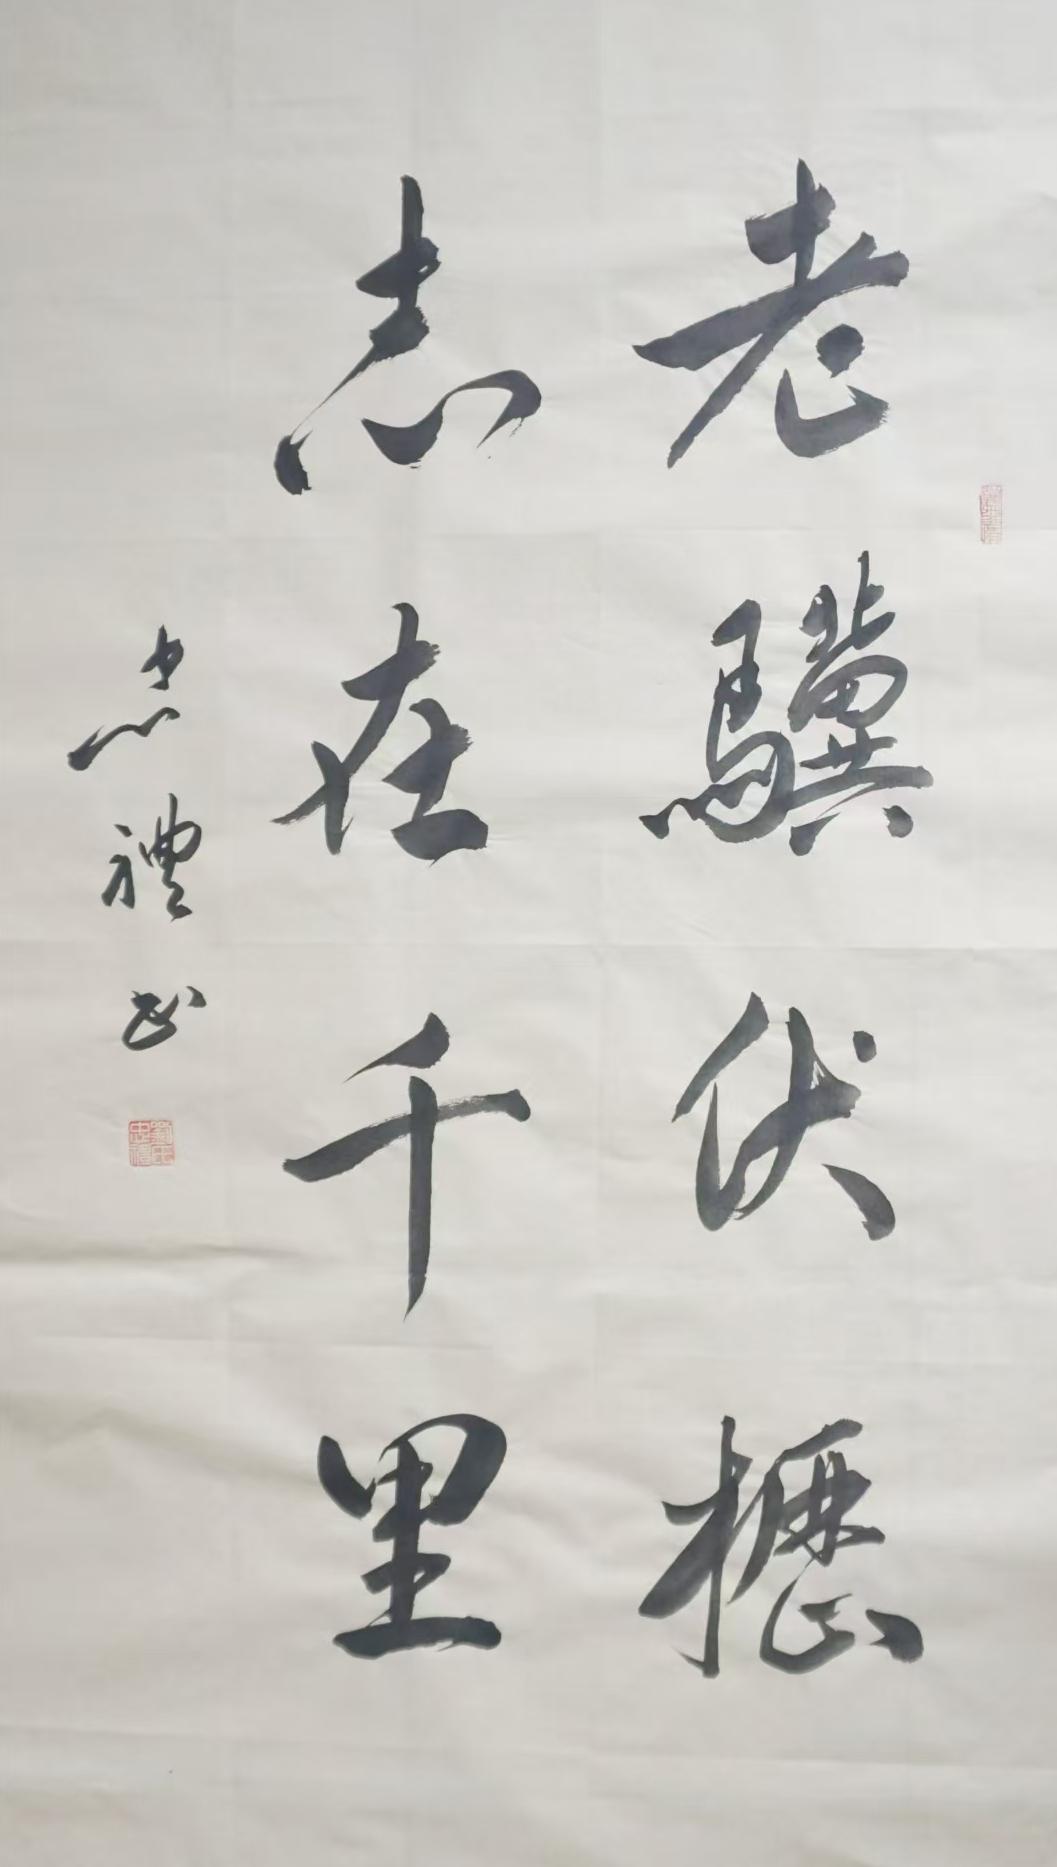 老驥伏櫪
志在千里
忠禮書